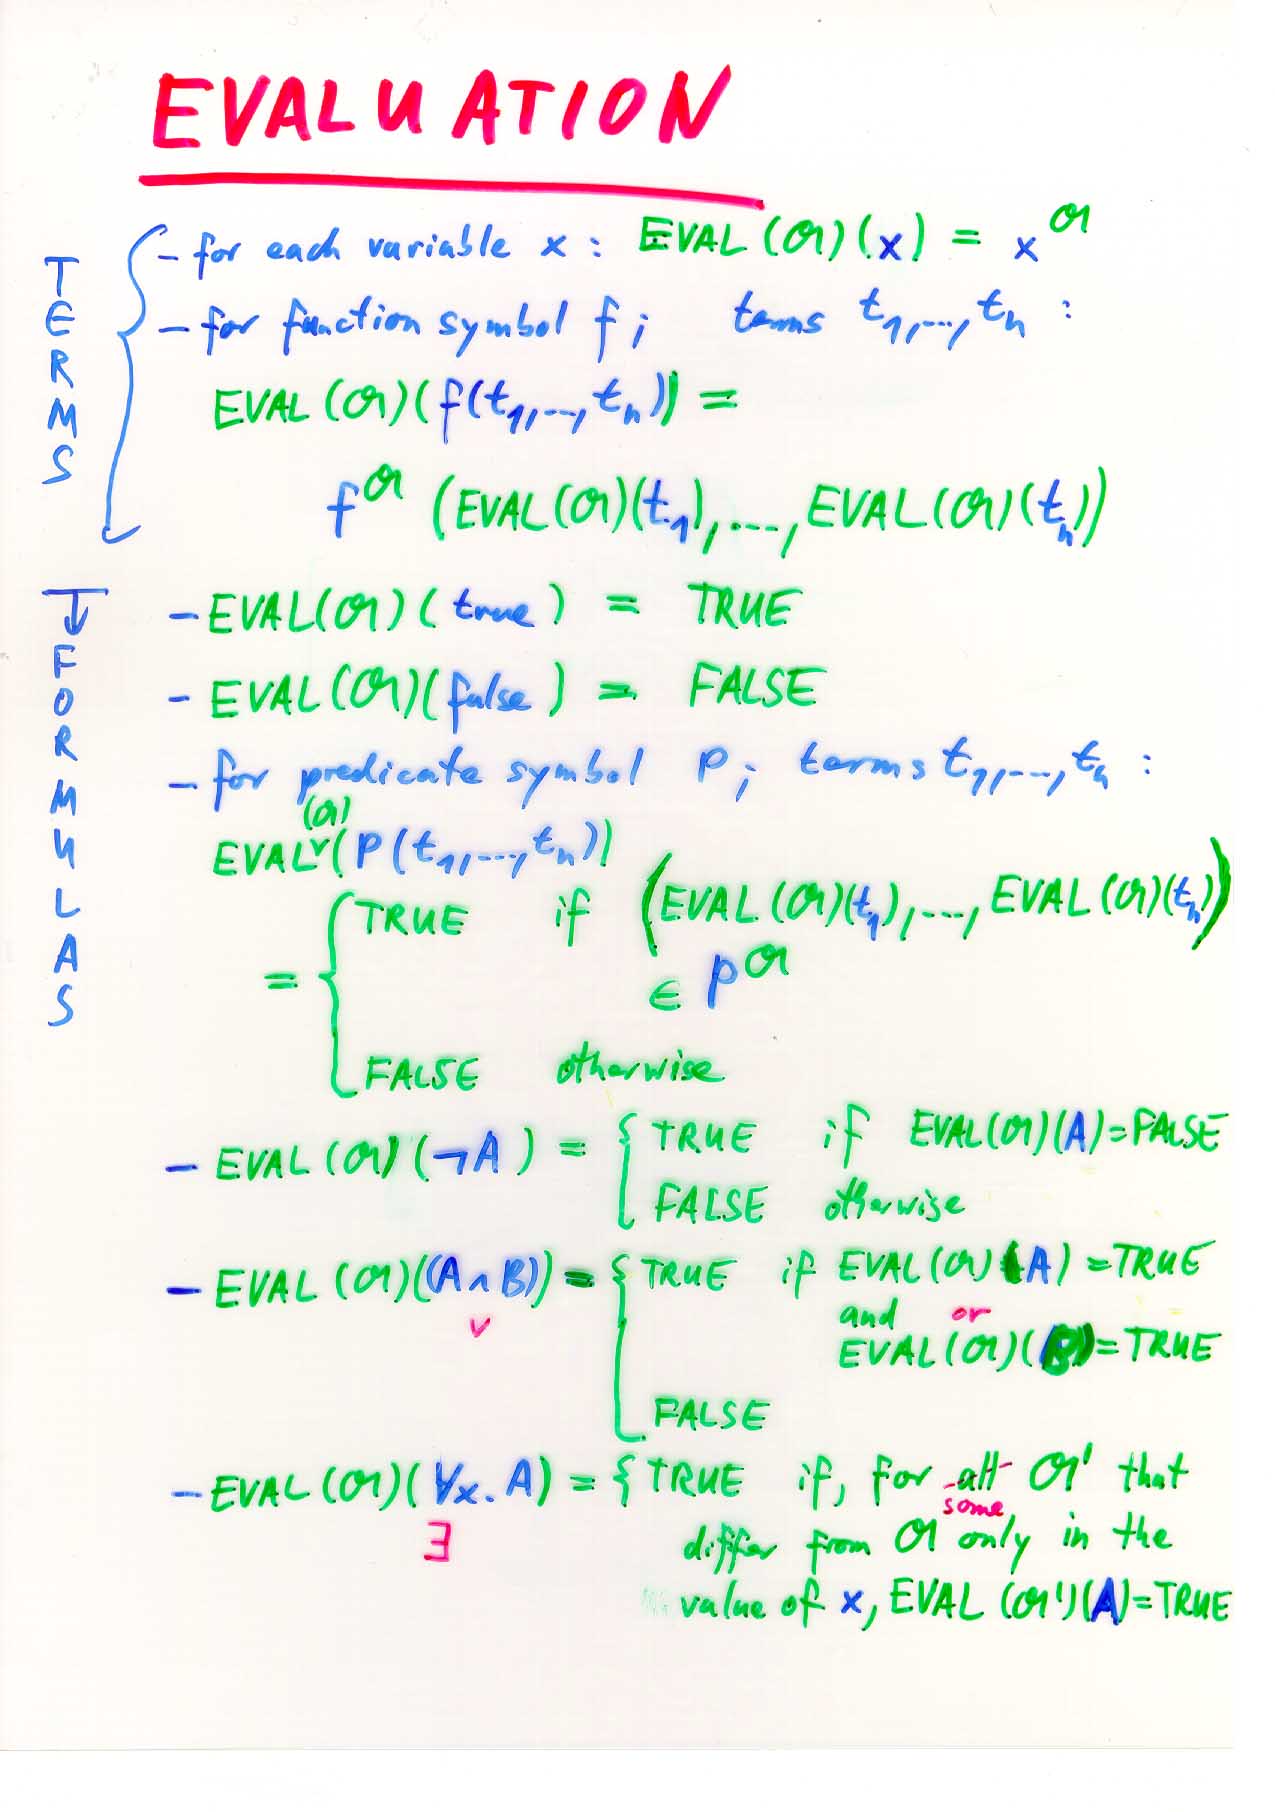 EVALUATION
TERMS
- for each variable x : EVAL (𝔄)(x) = x^𝔄
- for function symbol f ; terms t₁,...,tₙ :
EVAL (𝔄)(f(t₁,...,tₙ)) =
f^𝔄 (EVAL(𝔄)(t₁),...,EVAL(𝔄)(tₙ))
↓ FORMULAS
- EVAL(𝔄)(true) = TRUE
- EVAL(𝔄)(false) = FALSE
- for predicate symbol P ; terms t₁,...,tₙ :
(𝔄)
EVAL˅(P(t₁,...,tₙ))
= { TRUE if (EVAL(𝔄)(t₁),...,EVAL(𝔄)(tₙ))
∈ P^𝔄
FALSE otherwise
- EVAL(𝔄)(¬A) = { TRUE if EVAL(𝔄)(A)=FALSE
FALSE otherwise
- EVAL(𝔄)((A ∧ B)) = { TRUE if EVAL(𝔄)(A) = TRUE
∨ and or
EVAL(𝔄)(B) = TRUE
FALSE
- EVAL(𝔄)(∀x. A) = { TRUE if, for all 𝔄' that
∃ some
differ from 𝔄 only in the
value of x, EVAL (𝔄')(A)=TRUE